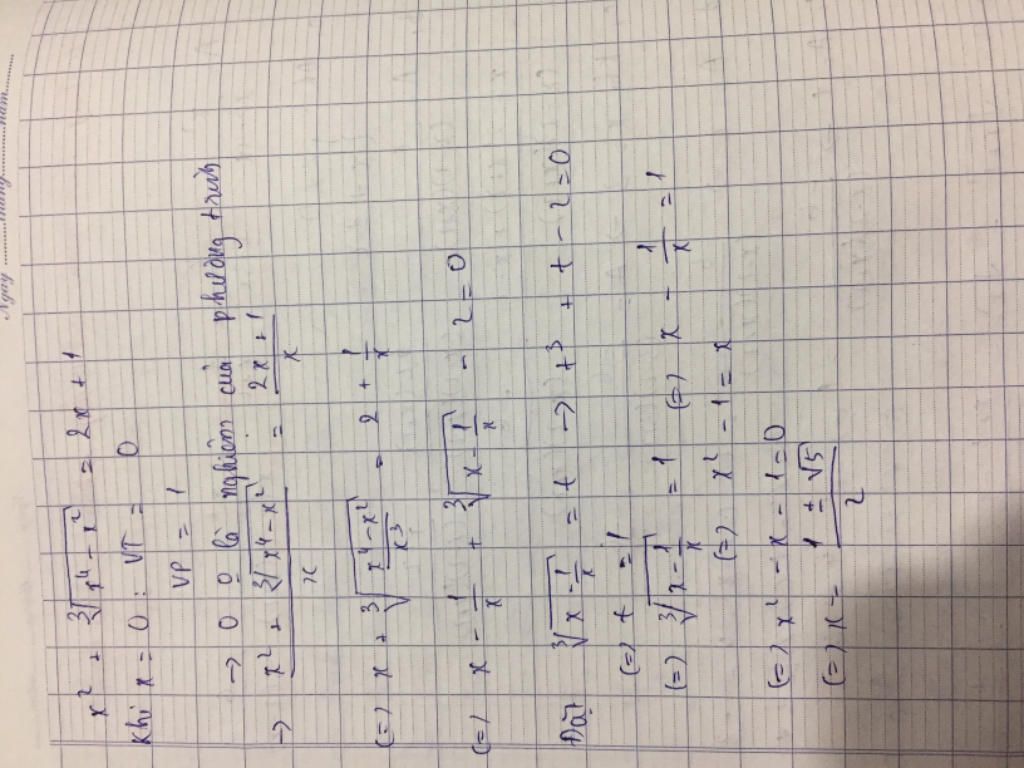 Ngày ............ tháng ............ năm ............
x² + ∛(x⁴ - x²) = 2x + 1
Khi x = 0 : VT = 0
VP = 1
→ 0 o là nghiệm của phương trình
→ (x² + ∛(x⁴ - x²))/x = (2x + 1)/x
(=) x + ∛((x⁴ - x²)/x³) = 2 + 1/x
(=) x - 1/x + ∛(x - 1/x) - 2 = 0
Đặt ∛(x - 1/x) = t → t³ + t - 2 = 0
(=) t = 1
(=) ∛(x - 1/x) = 1 (=) x - 1/x = 1
(=) x² - 1 = x
(=) x² - x - 1 = 0
(=) x = (1 ± √5)/2